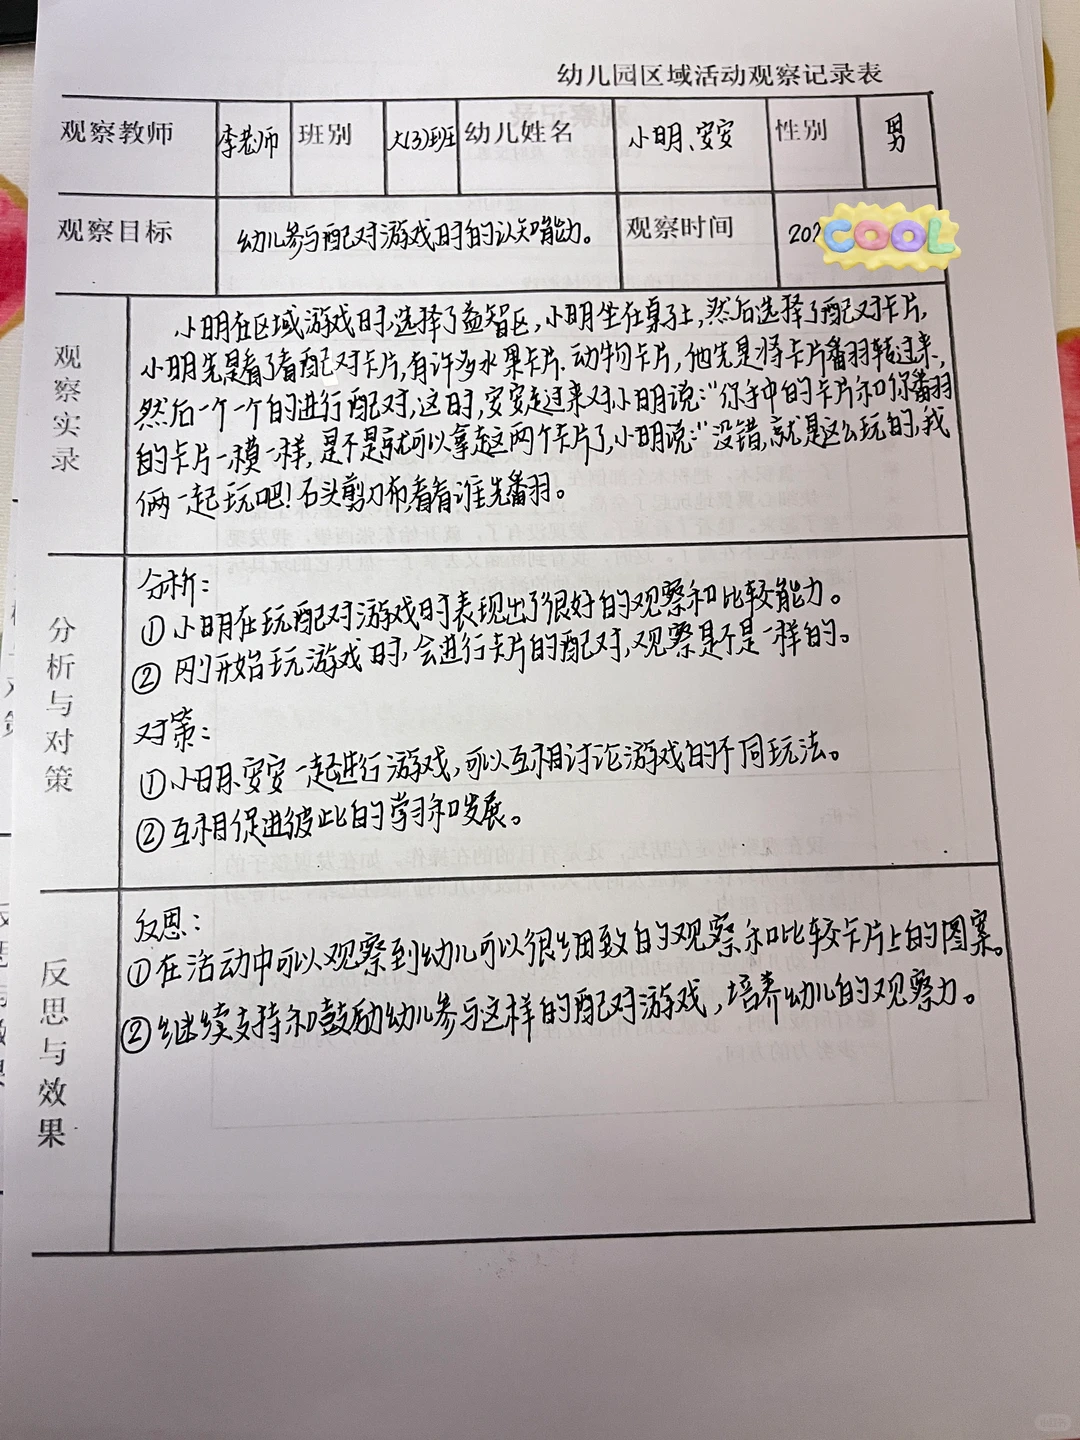 幼儿园区域活动观察记录表
观察教师 李老师 班别 大(3)班 幼儿姓名 小明、安安 性别 男
观察目标 幼儿参与配对游戏时的认知能力。 观察时间 202
COOL
观察实录
小明在区域游戏时,选择了益智区,小明坐在桌子上,然后选择了配对卡片,
小明先是看了看配对卡片,有许多水果卡片、动物卡片,他先是将卡片翻转过来,
然后一个一个的进行配对,这时,安安走过来对小明说:“你手中的卡片和你翻
的卡片一模一样,是不是就可以拿走这两个卡片了,小明说:“没错,就是这么玩的,我
俩一起玩吧!石头剪刀布看看谁先翻。
分析与对策
分析:
①小明在玩配对游戏时表现出了很好的观察和比较能力。
②刚开始玩游戏时,会进行卡片的配对,观察是不是一样的。
对策:
①小明、安安一起进行游戏,可以互相讨论游戏的不同玩法。
②互相促进彼此的学习和发展。
反思与效果
反思:
①在活动中可以观察到幼儿可以很细致的观察和比较卡片上的图案。
②继续支持和鼓励幼儿参与这样的配对游戏,培养幼儿的观察力。
小红书